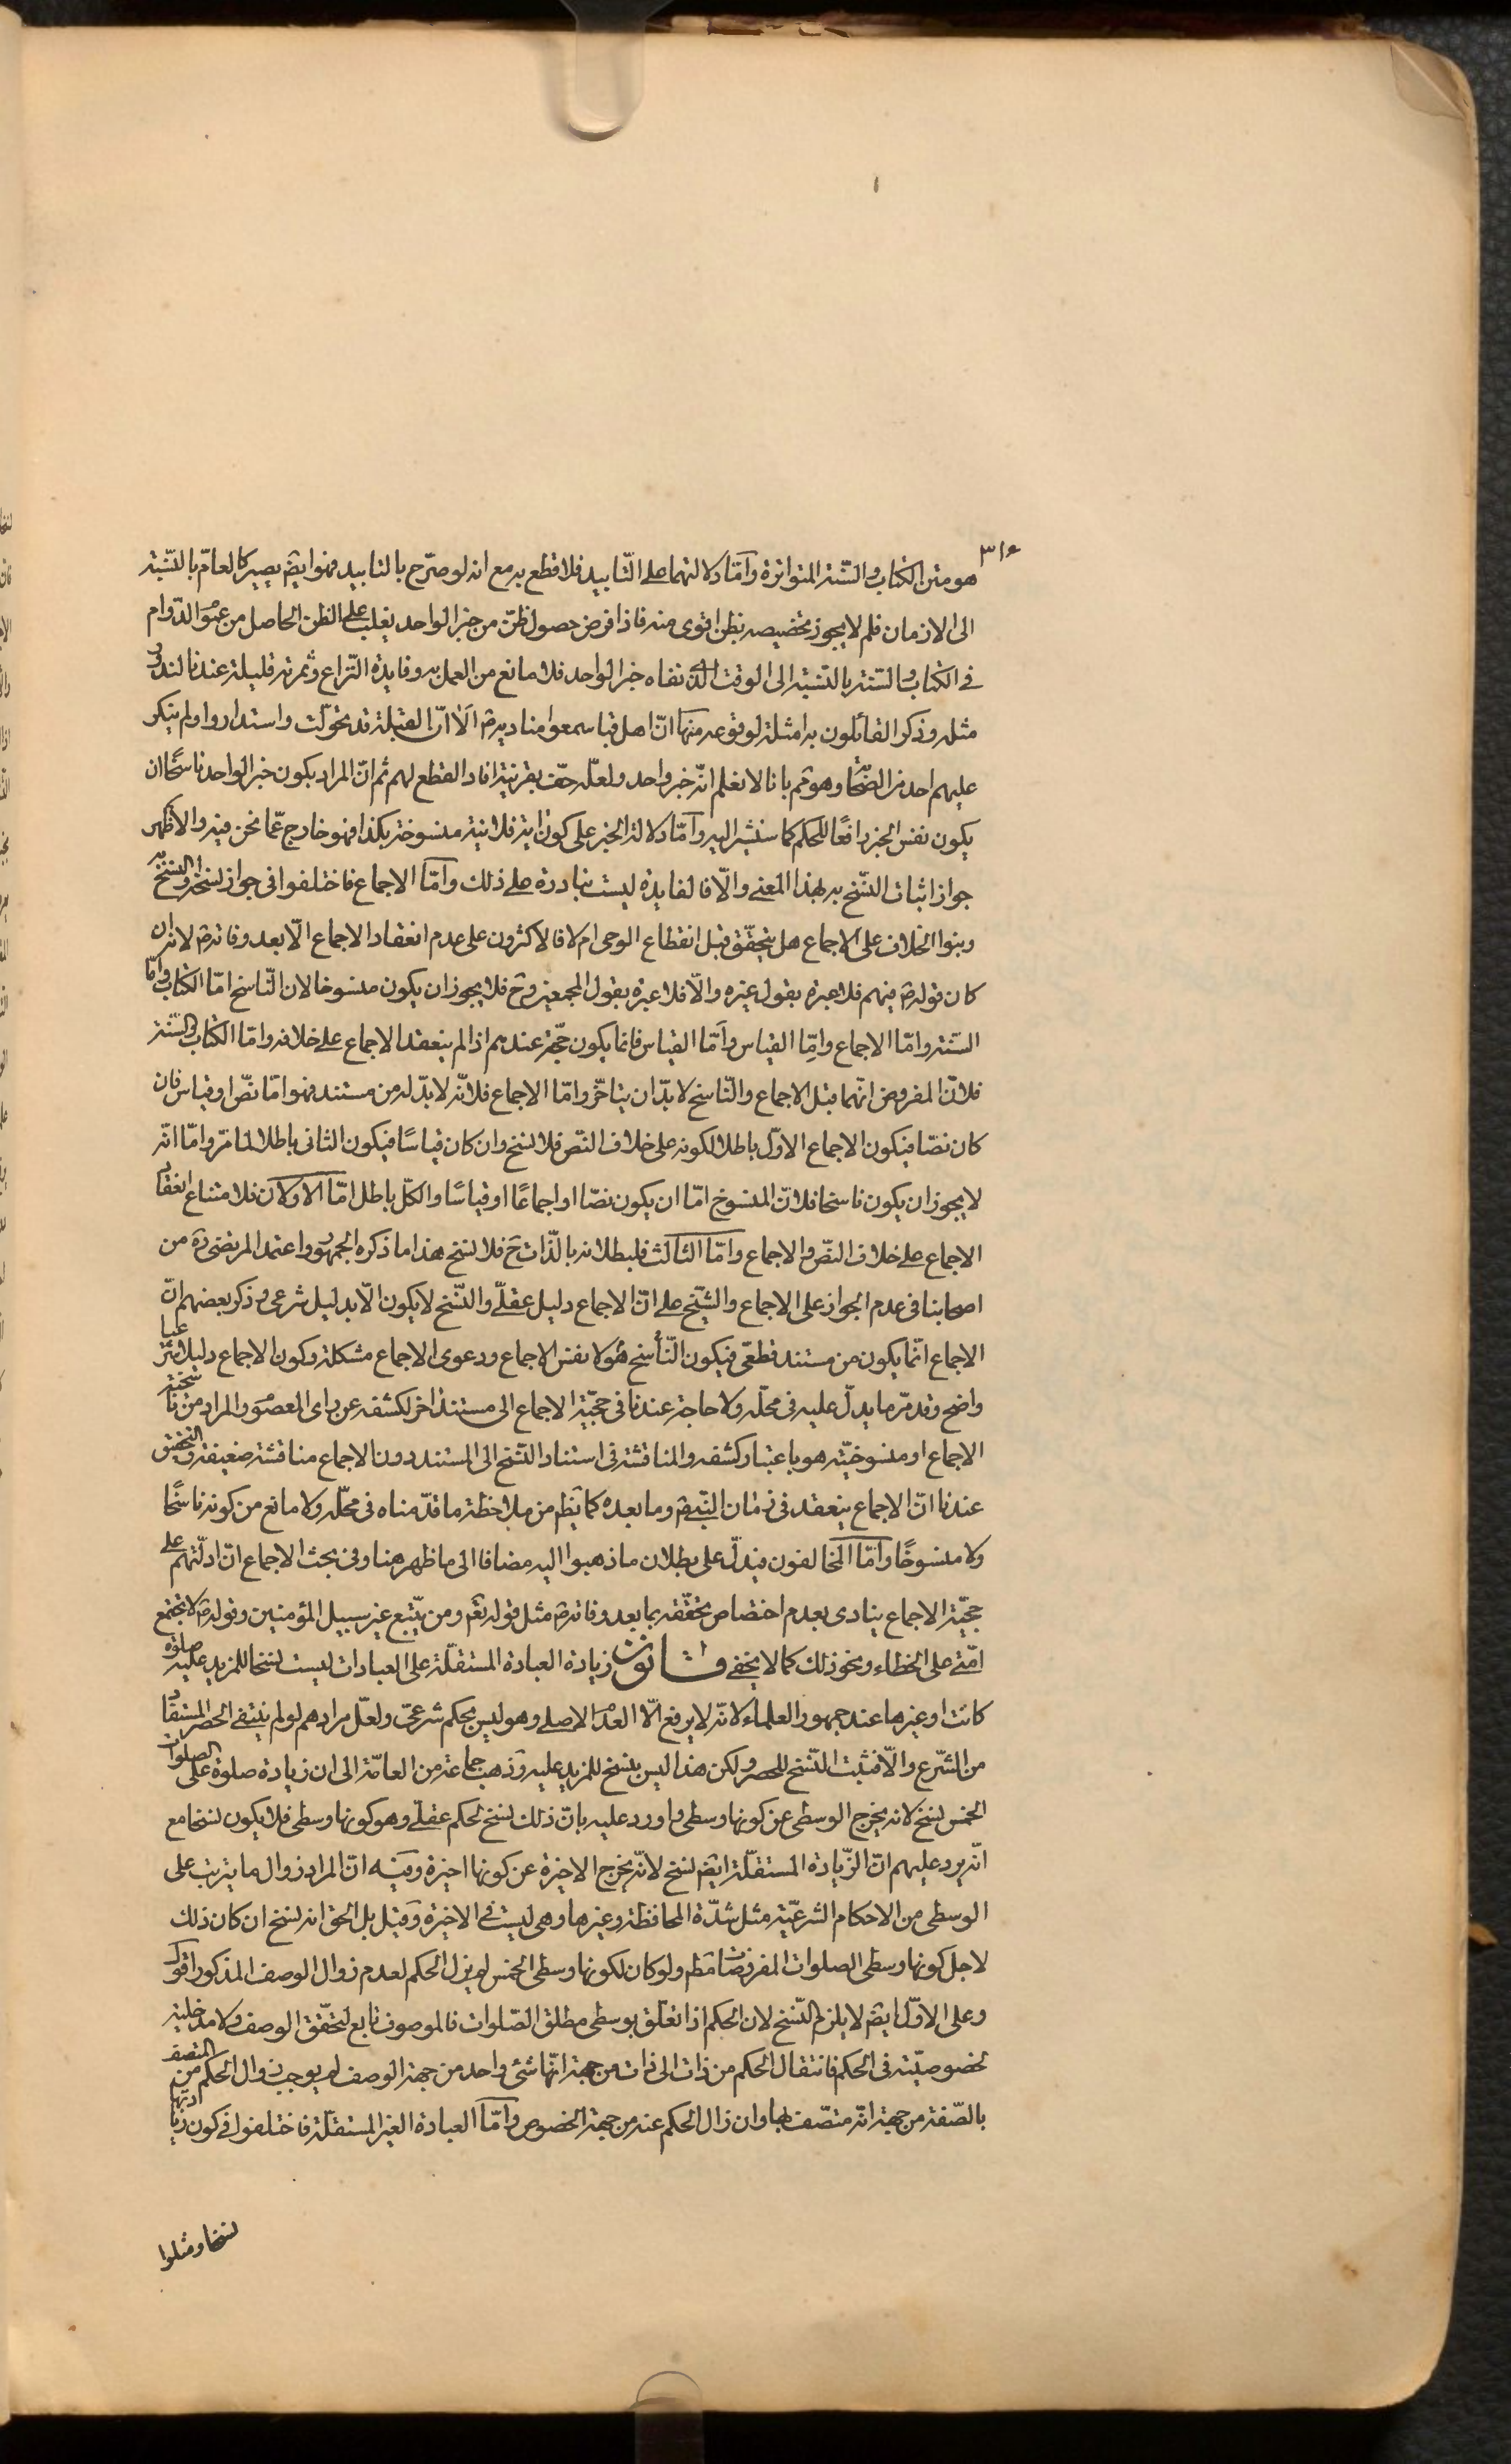 ٣١٥
هو متن الكتاب والسّنة المتواترة وأمّا دلالتهما على التّابيد فلا قطع به مع انه لو صرّح بالتابيد فهو ايضَ يصير كالعامّ بالنّسبة
الى الازمان فلم لا يجوز تخصيصه بظن اقوى منه فاذا فرض حصول ظنّ من خبر الواحد يغلب على الظن الحاصل من عموَ الدّوام
فى الكتاب والسّنة بالنسبة الى الوقت الّذى نفاه خبر الواحد فلا مانع من العمل به وفايدة النّزاع وثمرته قليلة عندنا لندور
مثله وذكر القائلون به امثلة لوقوعه منها انّ اهل قبا سمعوا مناديهَ الا انّ القبلة قد تحوّلت واستداروا ولم ينكر
عليهم احد من الصّحَابة وهو مَم بانا لا نعلم انّه خبر واحد ولعلّه حفّ بقرينة افاد القطع لهم ثم انّ المراد بكون خبر الواحد ناسخًا ان
يكون نفس الخبر رافعًا للحكم كما سنشير اليه وأمّا دلالة الخبر على كون اية فلانية منسوخة بكذا فهو خارج عمّا نحن فيه والاظهر
جواز اثبات النّسخ به بهذا المعنى والّا فالفايدة ليست بنادرة على ذلك وأمّا الاجماع فاختلفوا فى جواز نسخه والنسخ به
وبنوا الخلاف على الاجماع هل يتحقّق قبل انقطاع الوحى ام لا فالاكثرون على عدم انعقاد الاجماع الّا بعد وفاتهَ لانه ان
كان قولهَ فيهم فلا عبرة بقول غيره والّا فلا عبرة بقول المجمعين وحَ فلا يجوز ان يكون منسوخا لان النّاسخ امّا الكتاب وامّا
السّنة وامّا الاجماع وامّا القياس وأمّا القياس فانما يكون حجّة عندهم اذا لم ينعقد الاجماع على خلافه وامّا الكتاب والسّنة
فلانّ المفروض انّهما قبل الاجماع والنّاسخ لا بدّ ان يتاخّر وامّا الاجماع فلانّه لا بدّ له من مستند فهو امّا نصّ او قياس فان
كان نصّا فيكون الاجماع الاوّل باطلا لكونه على خلاف النصّ فلا نسخ وان كان قياسًا فيكون الثانى باطلا لما مرّ وامّا انّه
لا يجوز ان يكون ناسخا فلانّ المنسوخ امّا ان يكون نصّا او اجماعًا او قياسًا والكلّ باطل امّا الاوّلان فلامتناع انعقاد
الاجماع على خلاف النصّ والاجماع وامّا الثالث فلبطلانه بالذّات حَ فلا نسخ هذا ما ذكره الجمهور واعتمد المرتضى رَه من
اصحابنا فى عدم الجواز على الاجماع والشّيخ على انّ الاجماع دليل عقلّى والنّسخ لا يكون الّا بدليل شرعى وذكر بعضهم انّ
الاجماع انّما يكون من مستند قطعّى فيكون النّاسخ هو لا نفس الاجماع ودعوى الاجماع مشكلة وكون الاجماع دليلا شرعيا
واضح وقد مرّ ما يدلّ عليه فى محلّه ولا حاجة عندنا فى حجّية الاجماع الى مستند اخر لكشفه عن راى المعصوَم والمراد من ناسخية
الاجماع او منسوخيّته هو باعتبار كشفه والمناقشة فى استناد النّسخ الى المستند دون الاجماع مناقشة ضعيفة والتحقيق
عندنا انّ الاجماع ينعقد فى زمان النّبىَ وما بعده كما يظهر من ملاحظة ما قدّمناه فى محلّه ولا مانع من كونه ناسخًا
ولا منسوخًا وأمّا المخالفون فيدلّ على بطلان ما ذهبوا اليه مضافا الى ما ظهر هنا وفى بحث الاجماع انّ ادلّتهم على
حجّية الاجماع ينادى بعدم اختصاص تحقّقه بما بعد وفاتهَ مثل قوله تعَم ومن يتّبع غير سبيل المؤمنين وقولهَ لا تجتمع
امّتى على الخطاء ونحو ذلك كما لا يخفى قانون زيادة العبادة المستقلّة على العبادات ليست نسخا للمزيد عليه صلوة
كانت او غيرها عند جمهور العلماء لانّه لا يرفع الّا العدَم الاصلى وهو ليس بحكم شرعىّ ولعلّ مرادهم لو لم ينتفى الحصر المستفاد
من الشّرع والّا فيثبت النّسخ للحصر ولكن هذا ليس بنسخ للمزيد عليه وذهب جماعة من العامّة الى ان زيادة صلوة على الصلوات
الخمس نسخ لانه يخرج الوسطى عن كونها وسطى واورد عليه بانّ ذلك نسخ لحكم عقلّى وهو كونها وسطى فلا يكون نسخا مع
انّه يرد عليهم انّ الزّيادة المستقلّة ايضَ نسخ لانّه يخرج الاخيرة عن كونها اخيرة وفيه انّ المراد زوال ما يترتب على
الوسطى من الاحكام الشرعيّة مثل شدّة المحافظة وغيرها وهى ليست فى الاخيرة وقيل بل الحق انه نسخ ان كان ذلك
لاجل كونها وسطى الصلوات المفروضات مَطم ولو كان لكونها وسطى الخمس لم يزل الحكم لعدم زوال الوصف المذكور اقول
وعلى الاوّل ايضَ لا يلزم النّسخ لان الحكم اذا تعلّق بوسطى مطلق الصّلوات فالموصوف تابع لتحقّق الوصف ولا مدخلية
لخصوصيّته فى الحكم فانتقال الحكم من ذات الى ذات من جهة انّها شئ واحد من جهة الوصف لم يوجب زوال الحكم من المتصف
بالصّفة من جهة انّه متصّف بها وان زال الحكم عنه من جهة الخصوص وأمّا العبادة الغير المستقلّة فاختلفوا فى كون زيادتها
نسخا ومثلوا